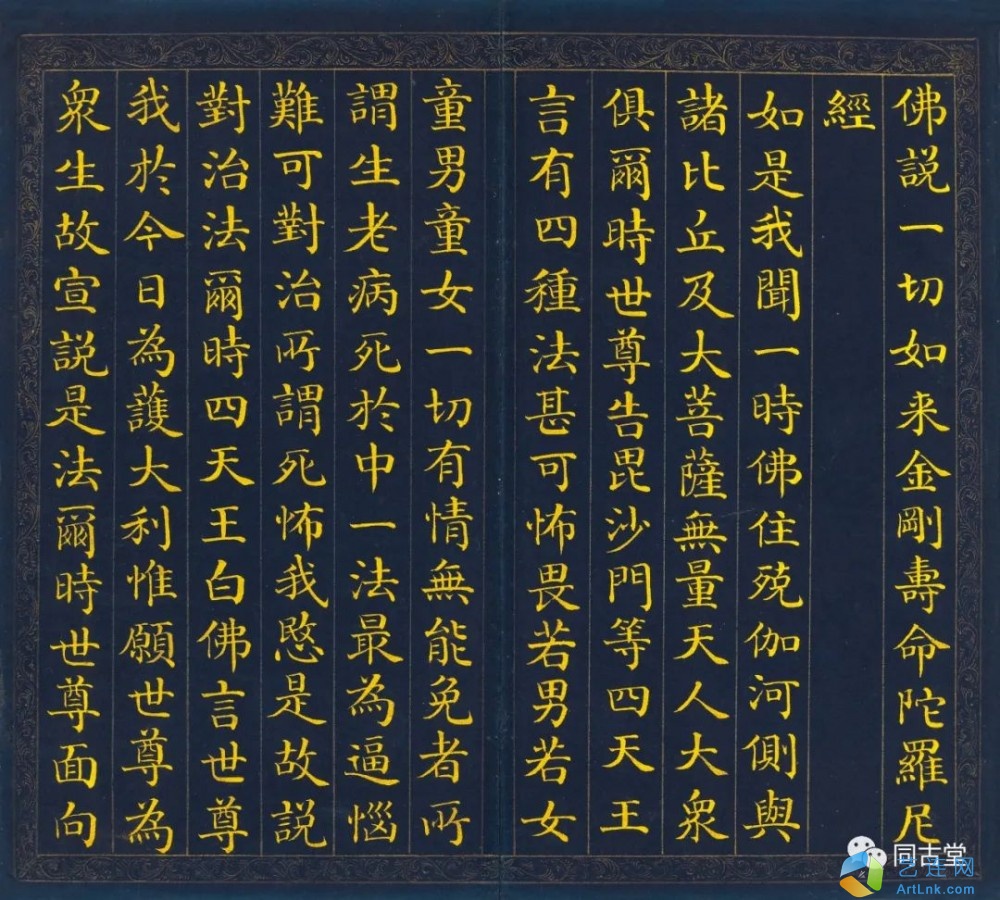 佛説一切如来金剛壽命陀羅尼
經
如是我聞一時佛住殑伽河側與
諸比丘及大菩薩無量天人大衆
俱爾時世尊告毘沙門等四天王
言有四種法甚可怖畏若男若女
童男童女一切有情無能免者所
謂生老病死於中一法最為逼惱
難可對治所謂死怖我愍是故説
對治法爾時四天王白佛言世尊
我於今日為護大利惟願世尊為
衆生故宣説是法爾時世尊面向
同古堂
艺连网
ArtLnk.com